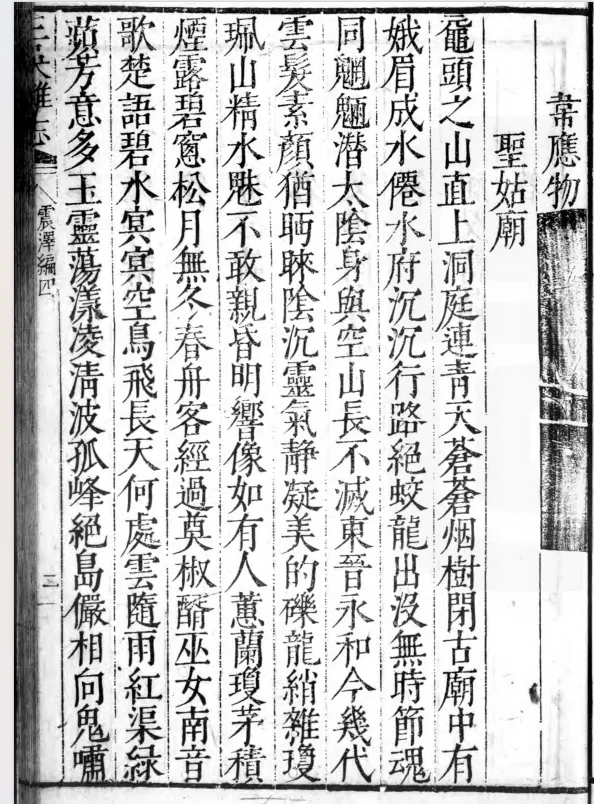 韋應物
聖姑廟
黿頭之山直上洞庭連青天蒼蒼烟樹閉古廟中有
娥眉成水僊水府沉沉行路絕蛟龍出没無時節魂
同魍魎潛太陰身與空山長不滅東晉永和今幾代
雲髮素顏猶眄睞陰沉靈氣静凝美的礫龍綃雜瓊
珮山精水魅不敢親昏明響像如有人蕙蘭瓊茅積
煙露碧窻松月無冬春舟客經過奠椒醑巫女南音
歌楚語碧水冥冥空鳥飛長天何處雲隨雨紅渠緑
蘋芳意多玉靈蕩漾凌清波孤峰絕島儼相向鬼嘯
震澤編四
三